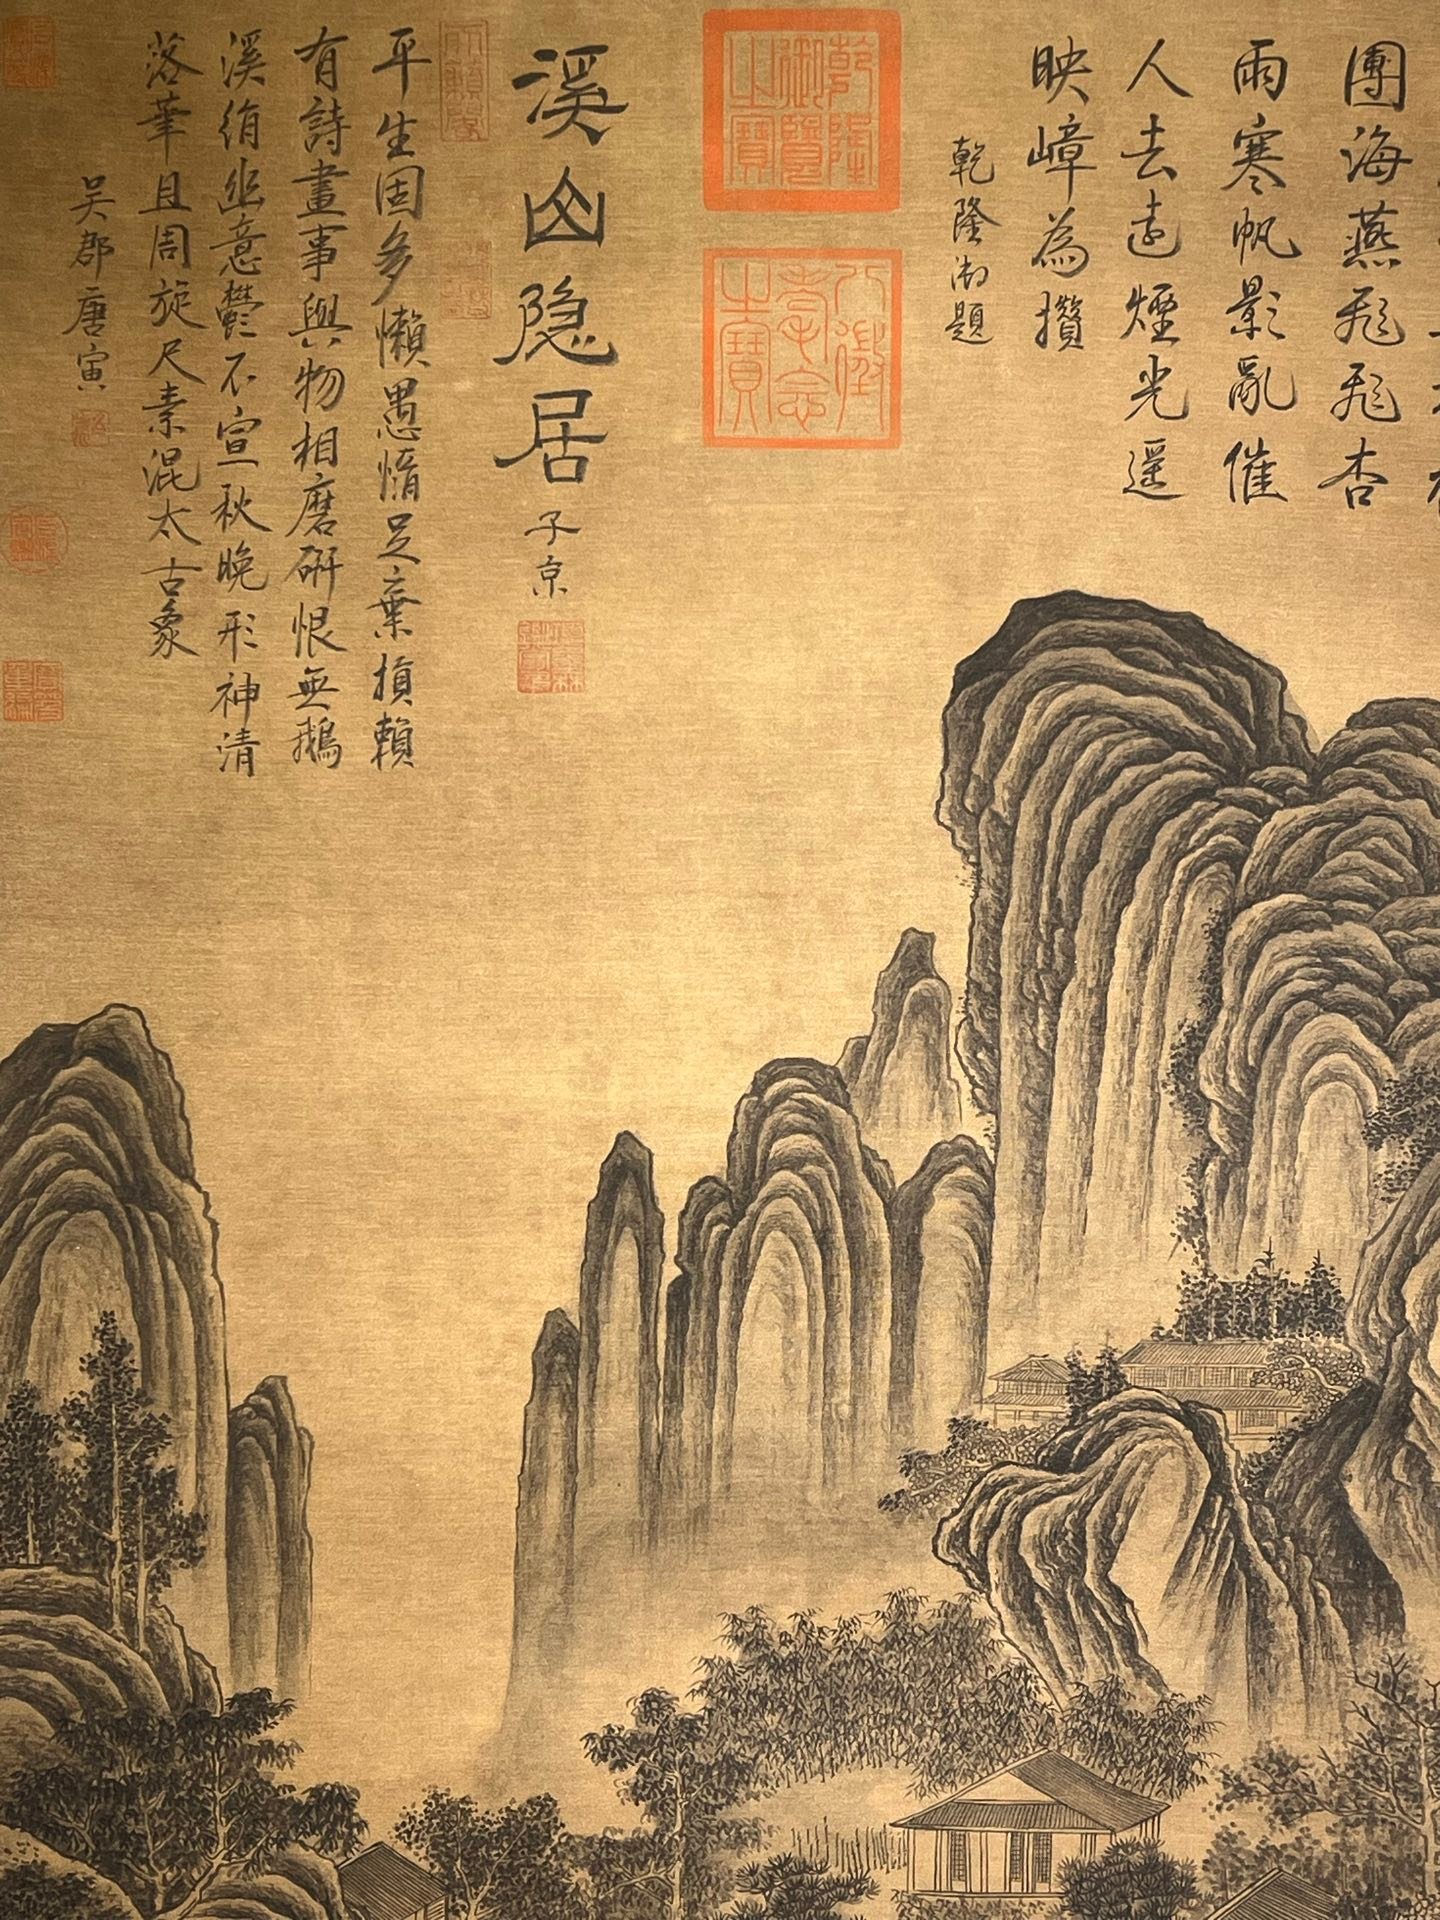 團海燕飛飛杏
雨寒帆影亂催
人去遠煙光遥
映嶂為攢
乾隆御題
乾隆御覽之寶
八徵耄念之寶
溪山隐居
子京
平生固多懒愚惰足棄損賴
有詩畫事與物相磨研恨無鵝
溪絹幽意鬱不宣秋晚形神清
落筆且周旋尺素混太古象
吳郡唐寅